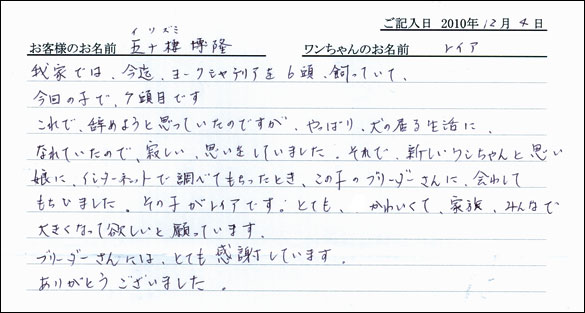 ご記入日 2010年 12月 4日
イリズミ
お客様のお名前 五十棲 博隆 ワンちゃんのお名前 レイア
我家では、今迄、ヨークシャテリアを6頭、飼っていて、
今回の子で、7頭目です
これで、辞めようと思っていたのですが、やっぱり、犬の居る生活に、
なれていたので、寂しい、思いをしていました。それで、新しいワンちゃんと思い
娘に、インターネットで調べてもらったとき、この子のブリーダーさんに、会わして
もらいました。その子がレイアです。とても、かわいくて、家族、みんなで
大きくなって欲しいと願っています。
ブリーダーさんには、とても感謝しています。
ありがとうございました。